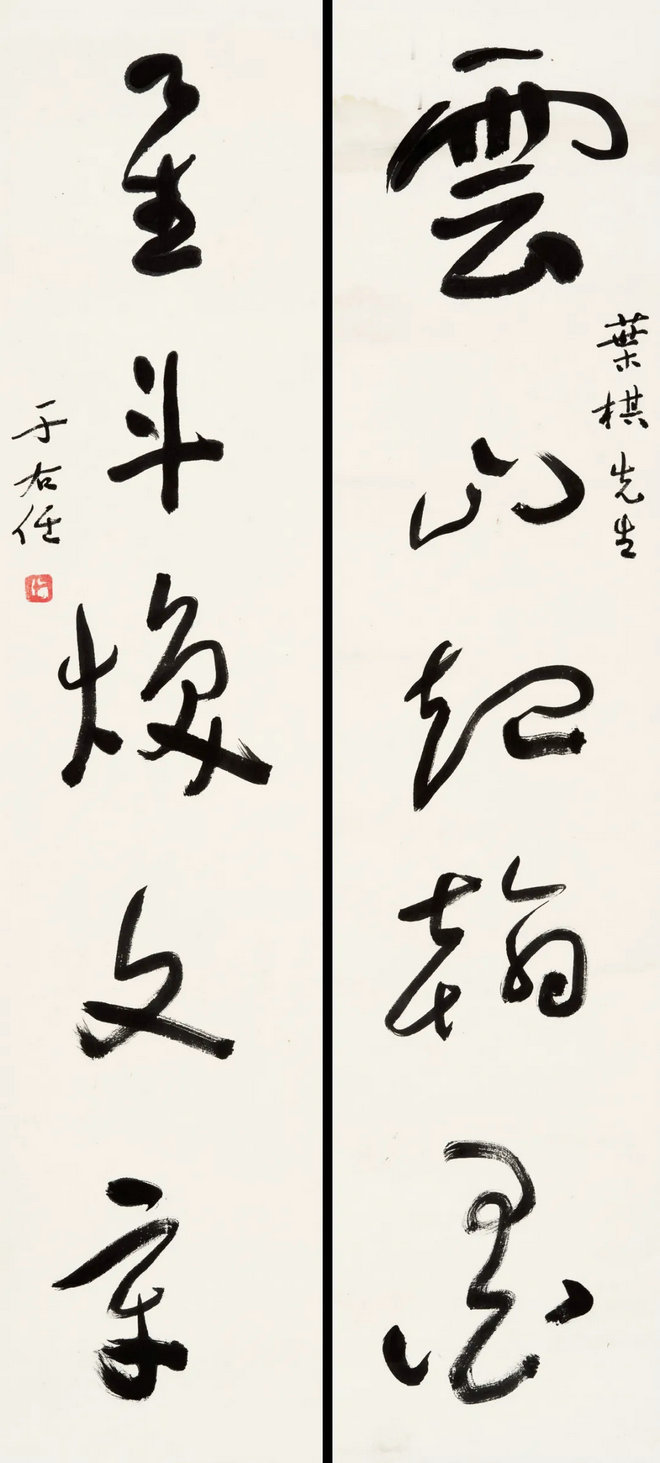 葉棋先生
雲山起翰墨
星斗煥文章
于右任